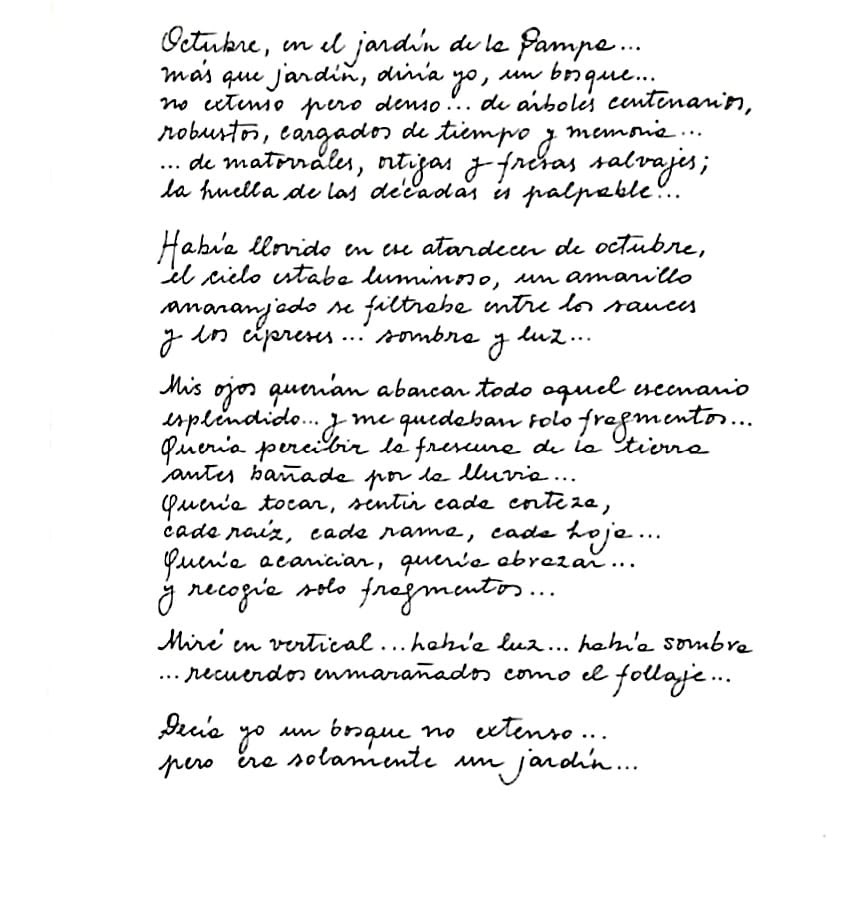 Octubre, en el jardín de la Pampa...
más que jardín, diría yo, un bosque...
no extenso pero denso... de árboles centenarios,
robustos, cargados de tiempo y memoria...
... de matorrales, ortigas y fresas salvajes;
la huella de las décadas es palpable...
Había llovido en ese atardecer de octubre,
el cielo estaba luminoso, un amarillo
anaranjado se filtraba entre los sauces
y los cipreses... sombra y luz...
Mis ojos querían abarcar todo aquel escenario
espléndido... y me quedaban solo fragmentos...
Quería percibir la frescura de la tierra
antes bañada por la lluvia...
Quería tocar, sentir cada corteza,
cada raíz, cada rama, cada hoja...
Quería acariciar, quería abrazar...
y recogía solo fragmentos...
Miré en vertical... había luz... había sombra
... recuerdos enmarañados como el follaje...
Decía yo un bosque no extenso...
pero era solamente un jardín...